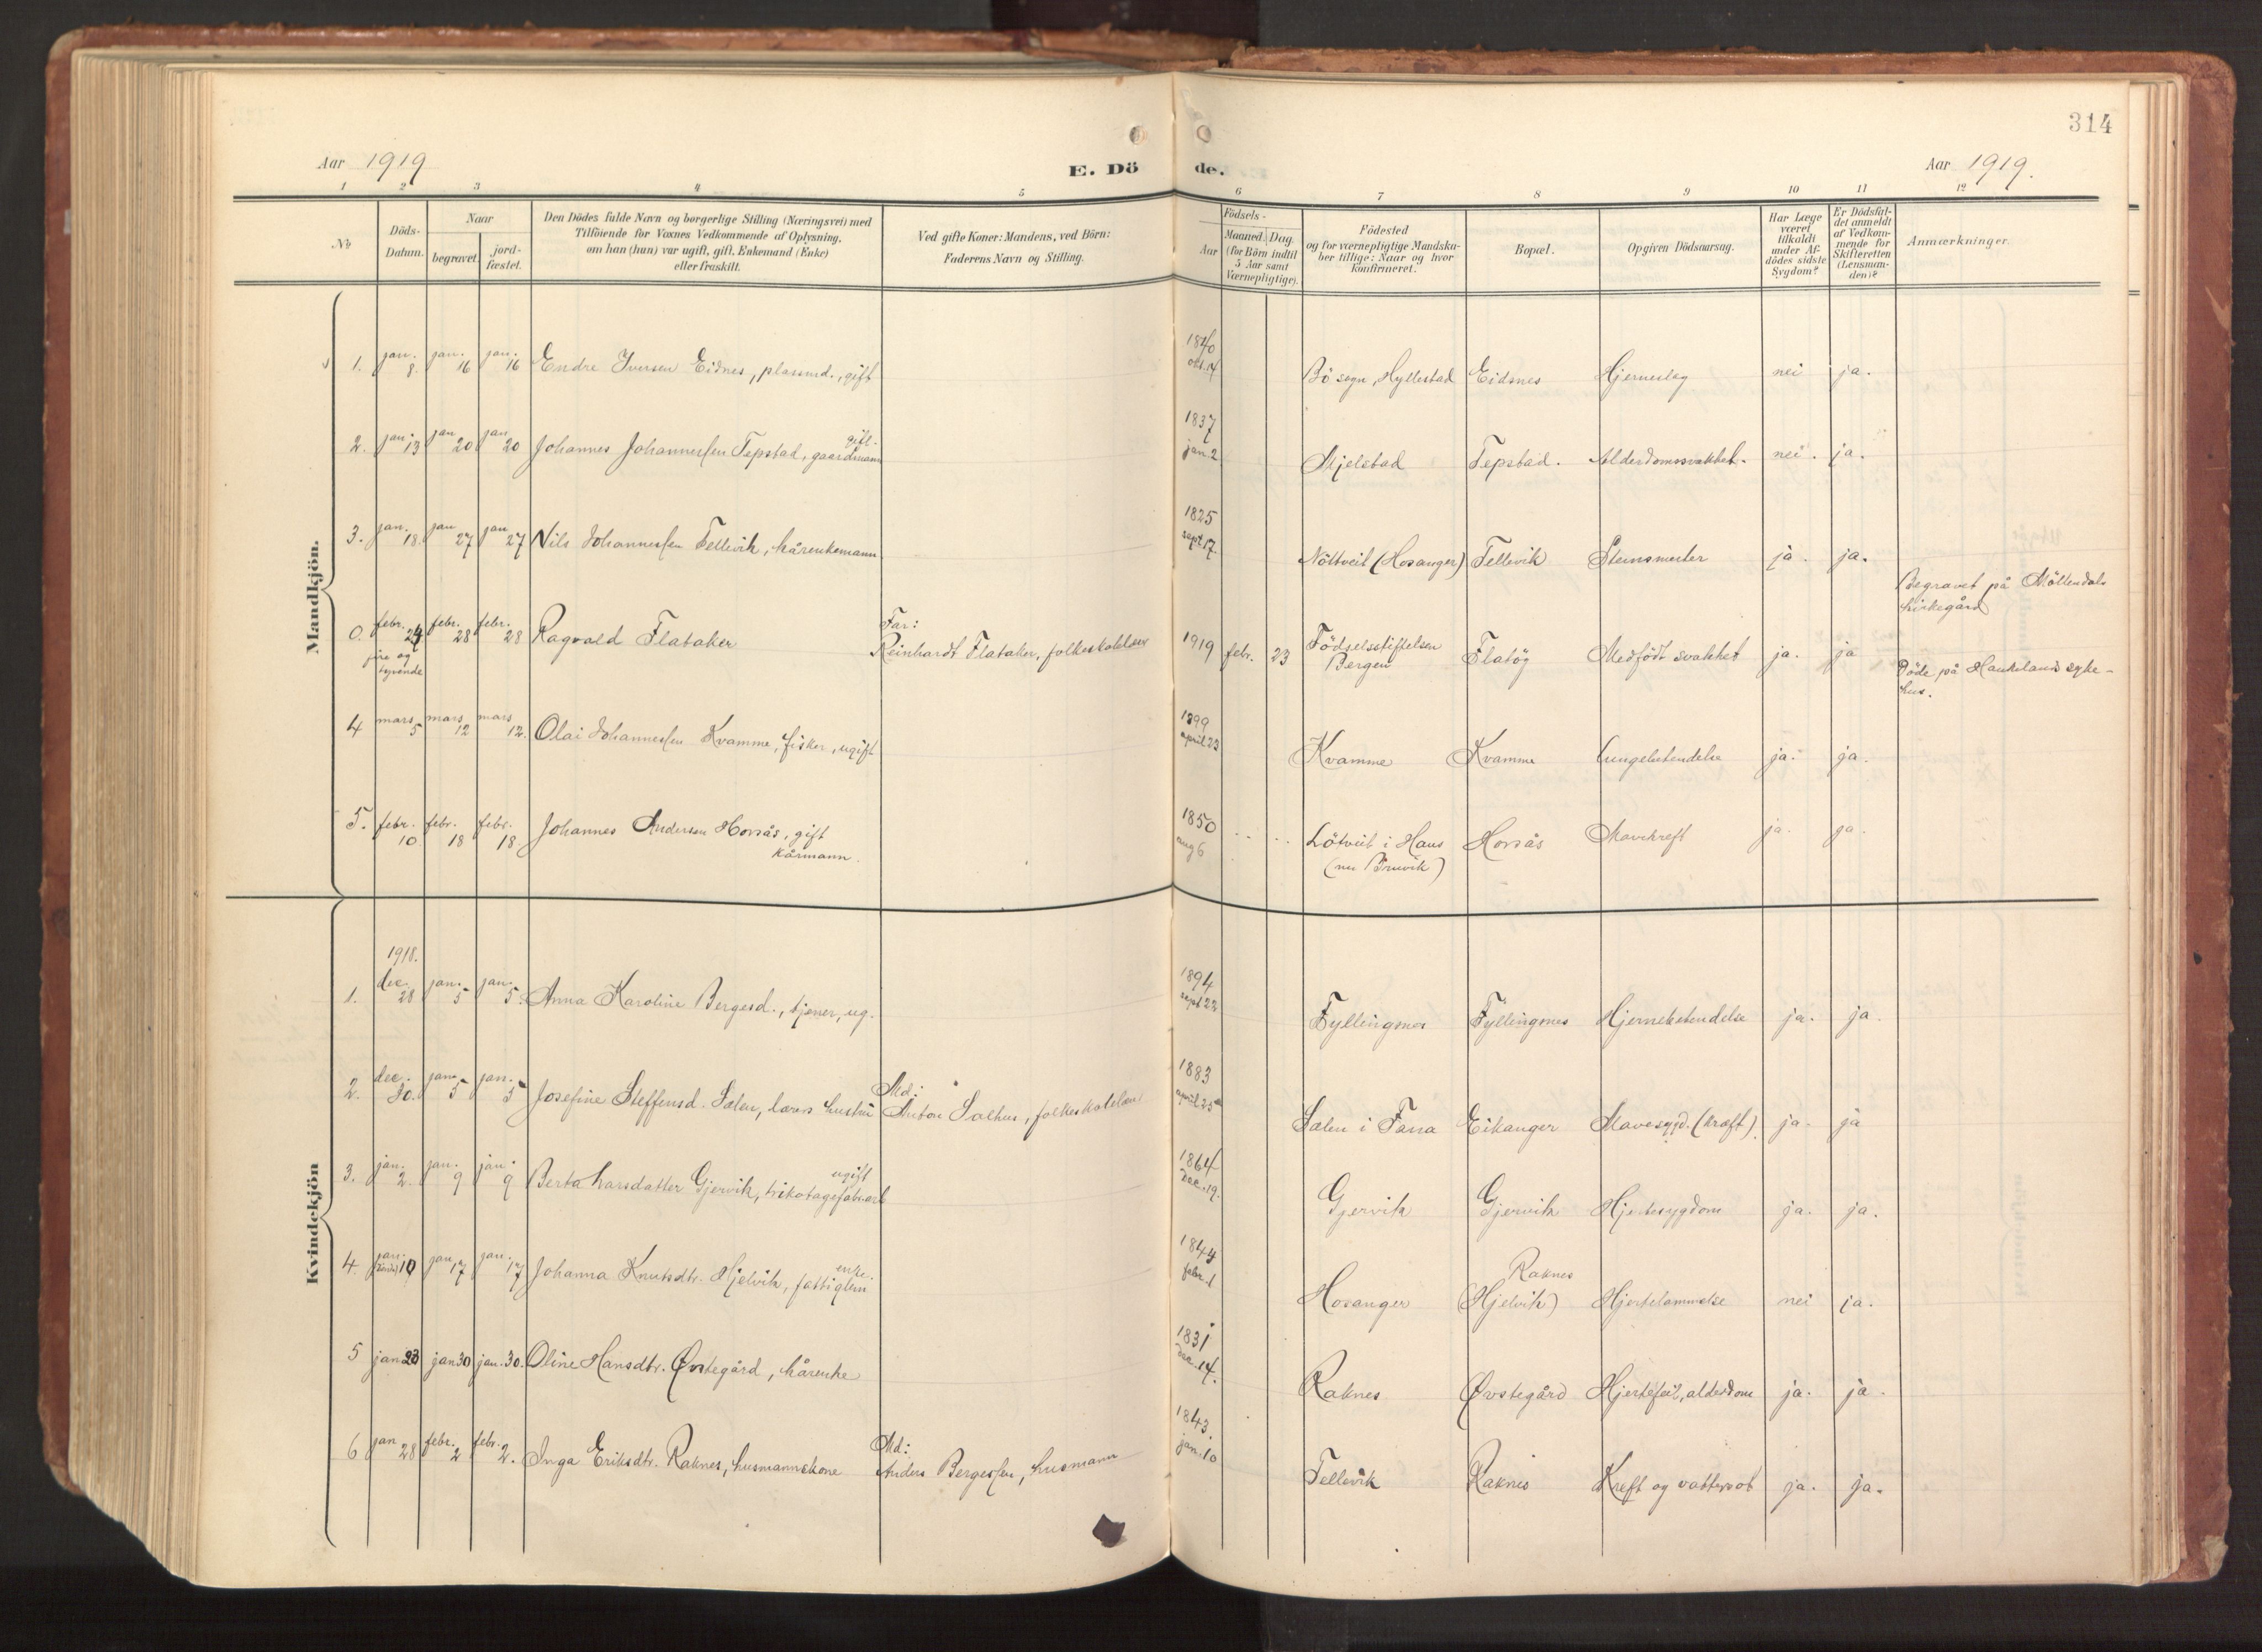 314
Aar 1919
E. Dö
de.
Aar 1919.
1 2 3 4 5 6 7 8 9 10 11 12
No
Döds-
Datum.
Naar
begravet.
jord-
fæstet.
Den Dödes fulde Navn og borgerlige Stilling (Næringsvei) med
Tilföiende for Voxnes Vedkommende af Oplysning,
om han (hun) var ugift, gift, Enkemand (Enke)
eller fraskilt.
Ved gifte Koner: Mandens, ved Börn:
Faderens Navn og Stilling.
Födsels-
Aar
Maaned. Dag
(for Börn indtil
5 Aar samt
Værnepligtige).
Födested
og for værnepligtige Mandska-
ber tillige: Naar og hvor
konfirmeret.
Bopæl.
Opgiven Dödsaarsag.
Har Læge
været
tilkaldt
under Af-
dödes sidste
Sygdom?
Er Dödsfal-
det anmeldt
af Vedkom-
mende for
Skifteretten
(Lensman-
den)?
Anmærkninger.
Mandkjön.
1. jan. 8. jan. 16 jan. 16 Endre Iversen Eidnes, plassmd., gift 1840 okt. 14 Bö sogn, Hyllestad Eidsnes Hjerneslag nei ja.
2. jan 13 jan 20 jan 20 Johannes Johannessen Tepstad, gaardmann gift. 1837 jan. 2 Mjelstad Tepstad. Alderdomssvakhet. nei. ja.
3. jan. 18. jan 27 jan 27 Nils Johannessen Tellevik, kårenkemann 1825 sept 17. Nöttveit (Hosanger) Tellevik Stensmerter ja. ja.
0. febr. 24 fire og tyvende febr. 28 febr. 28 Ragvald Flataker Far:
Reinhardt Flataker, folkeskolelærer 1919 febr. 23 Födselsstiftelsen
Bergen Flatög Medfödt svakhet ja. ja Begravet på Möllendals
kirkegård
4 mars 5 mars 12 mars 12. Olai Johannessen Kvamme, fisker, ugift 1899 april 23 Kvamme Kvamme Lungebetendelse ja. ja. Döde på Haukelands syke-
hus.
5. febr. 10 febr. 18 febr. 18 Johannes Andersen Horsås, gift
kårmann. 1850 aug 6 Lötveit i Haus
(nu Bruvik) Horsås Mavekreft ja. ja.
Kvindekjön
1. 1918. dec. 28 jan. 5 jan. 5. Anna Karoline Bergesd., tjener, ug. 1894 sept 22 Fyllingsnes Fyllingsnes Hjernebetendelse ja. ja.
2. dec. 30. jan. 5 jan. 5 Josefine Steffensd. Sælen, lærers hustru Md:
Anton Salhus, folkeskolelærer 1883 april 25 Sælen i Fana Eikanger Mavesygd. (kræft). ja. ja
3. jan. 2. jan. 9 jan. 9 Berta Larsdatter Gjervik, trikotagefabr.arb ugift 1864 dec. 19. Gjervik Gjervik Hjertesygdom ja. ja.
4. jan. 10 jan 17 jan. 17 Johanna Knutsdtr. Hjelvik, fattiglem enke. 1844 febr. 1 Hosanger Raknes
(Hjelvik) Hjertelammelse nei ja.
5 jan 23 jan 30 jan. 30. Oline Hansdtr. Øvstegård, kårenke 1831 dec. 14. Raknes Øvstegård Hjertefeil, alderdom ja. ja.
6 jan 28 febr. 2 febr. 2. Inga Eriksdtr. Raknes, husmannskone Md:
Anders Bergessen, husmann 1843. jan. 10 Tellevik Raknes Kreft og vattersot ja. ja.